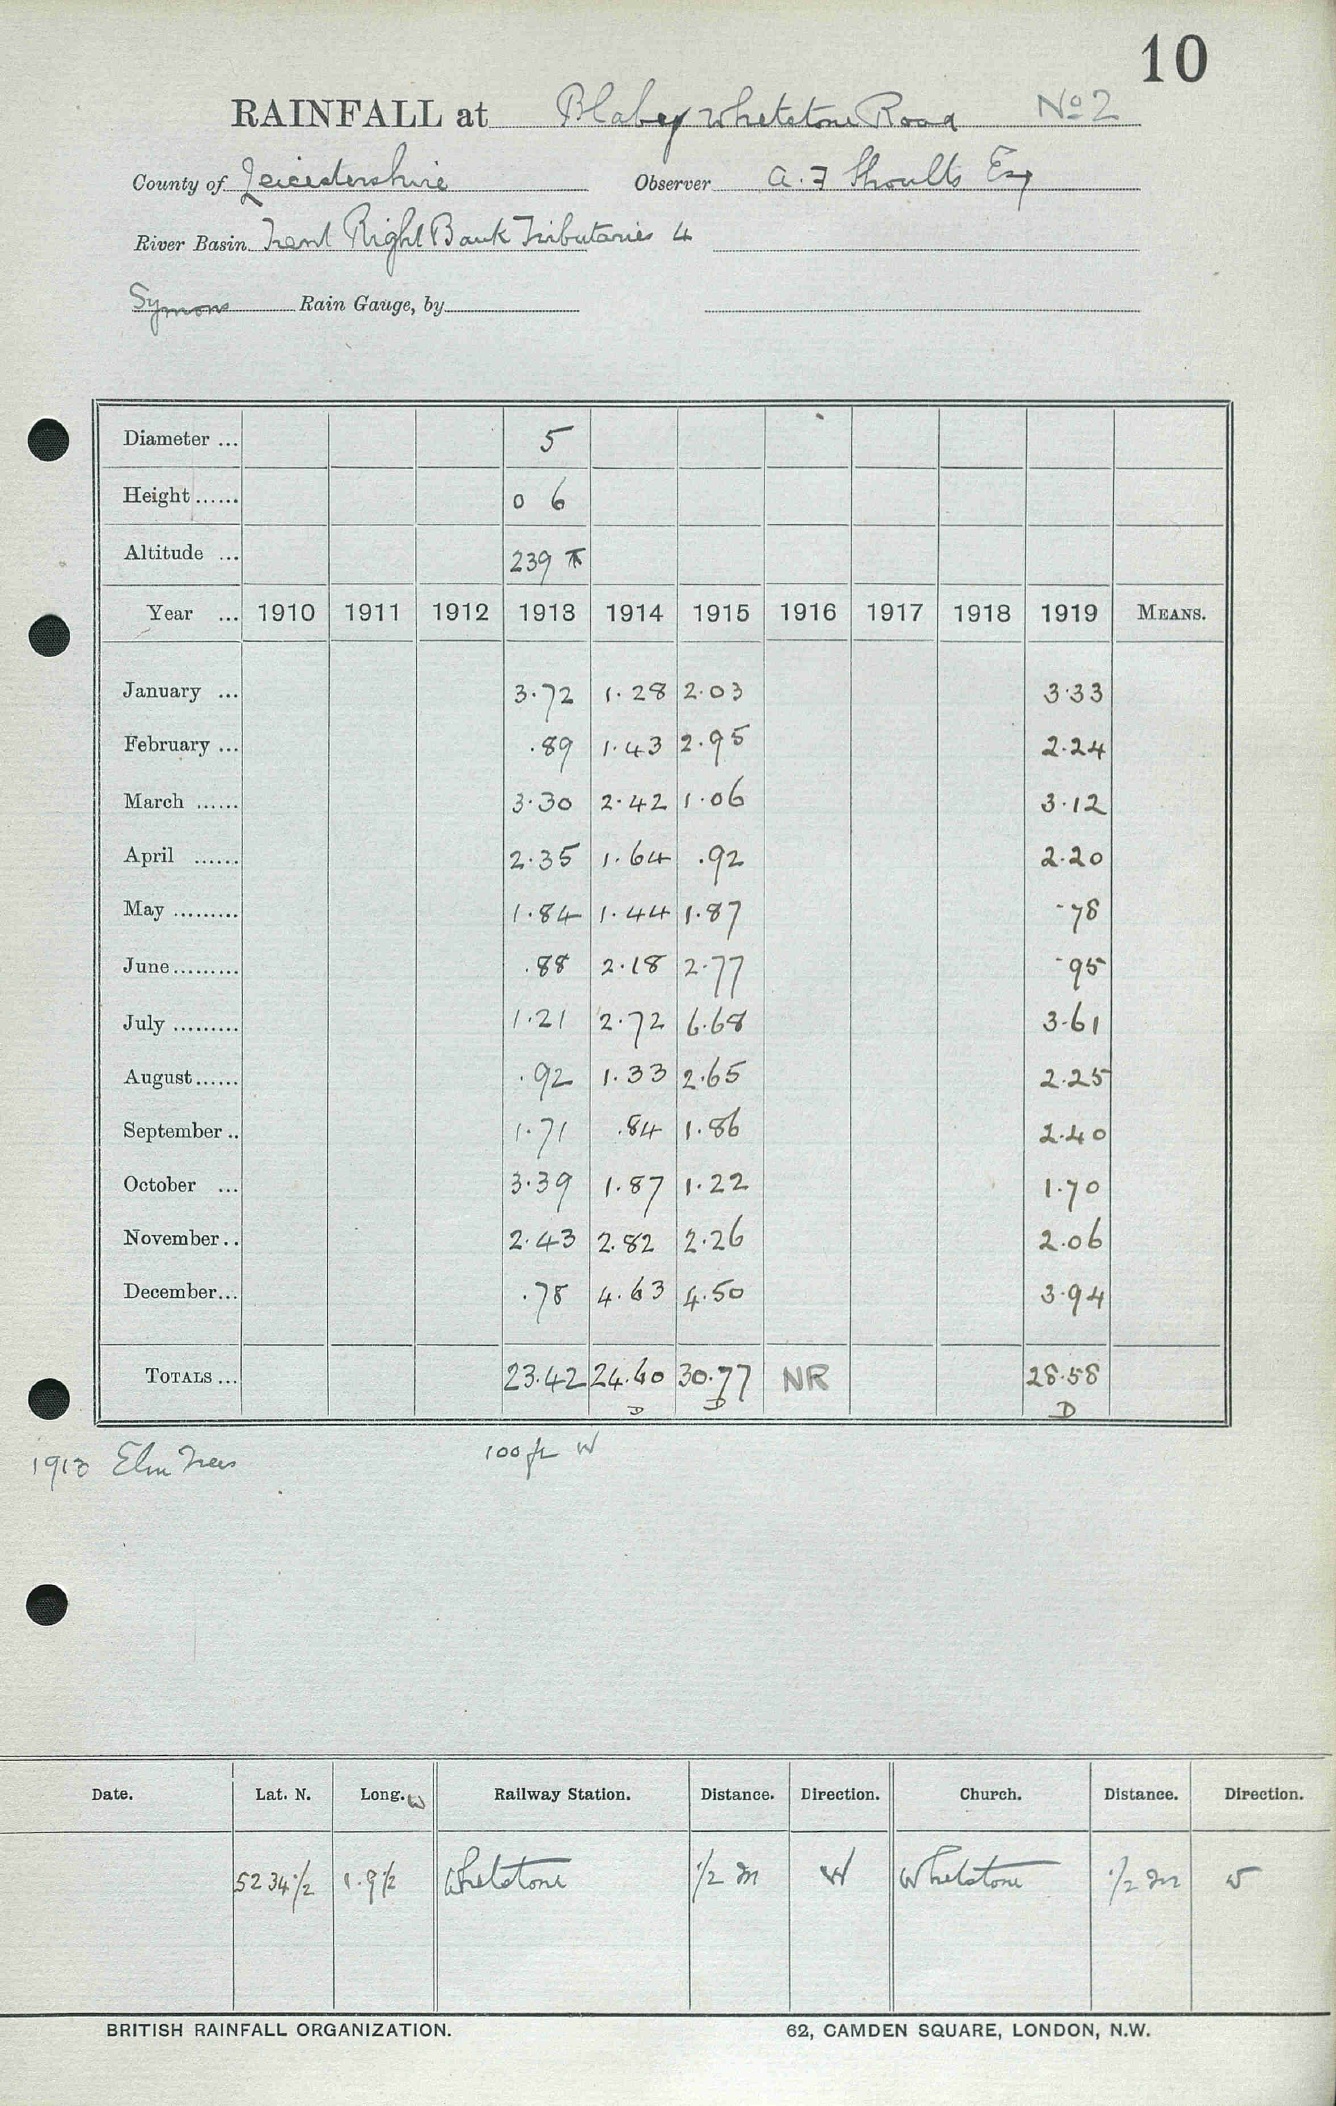 10
RAINFALL at Blaby Whetstone Road No 2
County of Leicestershire Observer A. F Shoults Esq
River Basin Trent Right Bank Tributaries 4
Symons Rain Gauge, by
Diameter ... 5
Height ...... 0 6
Altitude ... 239
Year ... 1910 1911 1912 1913 1914 1915 1916 1917 1918 1919 MEANS.
January ... 3.72 1.28 2.03 3.33
February ... .89 1.43 2.95 2.24
March ...... 3.30 2.42 1.06 3.12
April ...... 2.35 1.64 .92 2.20
May ......... 1.84 1.44 1.87 .78
June ......... .88 2.18 2.77 .95
July ......... 1.21 2.72 6.68 3.61
August ...... .92 1.33 2.65 2.25
September .. 1.71 .84 1.86 2.40
October ... 3.39 1.87 1.22 1.70
November .. 2.43 2.82 2.26 2.06
December ... .78 4.63 4.50 3.94
TOTALS ... 23.42 24.60 30.77 NR 28.58
D D D
1913 Elm Trees 100 ft W
Date. Lat. N. Long. W Railway Station. Distance. Direction. Church. Distance. Direction.
52 34 1/2 1. 9 1/2 Whetstone 1/2 m W Whetstone 1/2 m W
BRITISH RAINFALL ORGANIZATION. 62, CAMDEN SQUARE, LONDON, N.W.